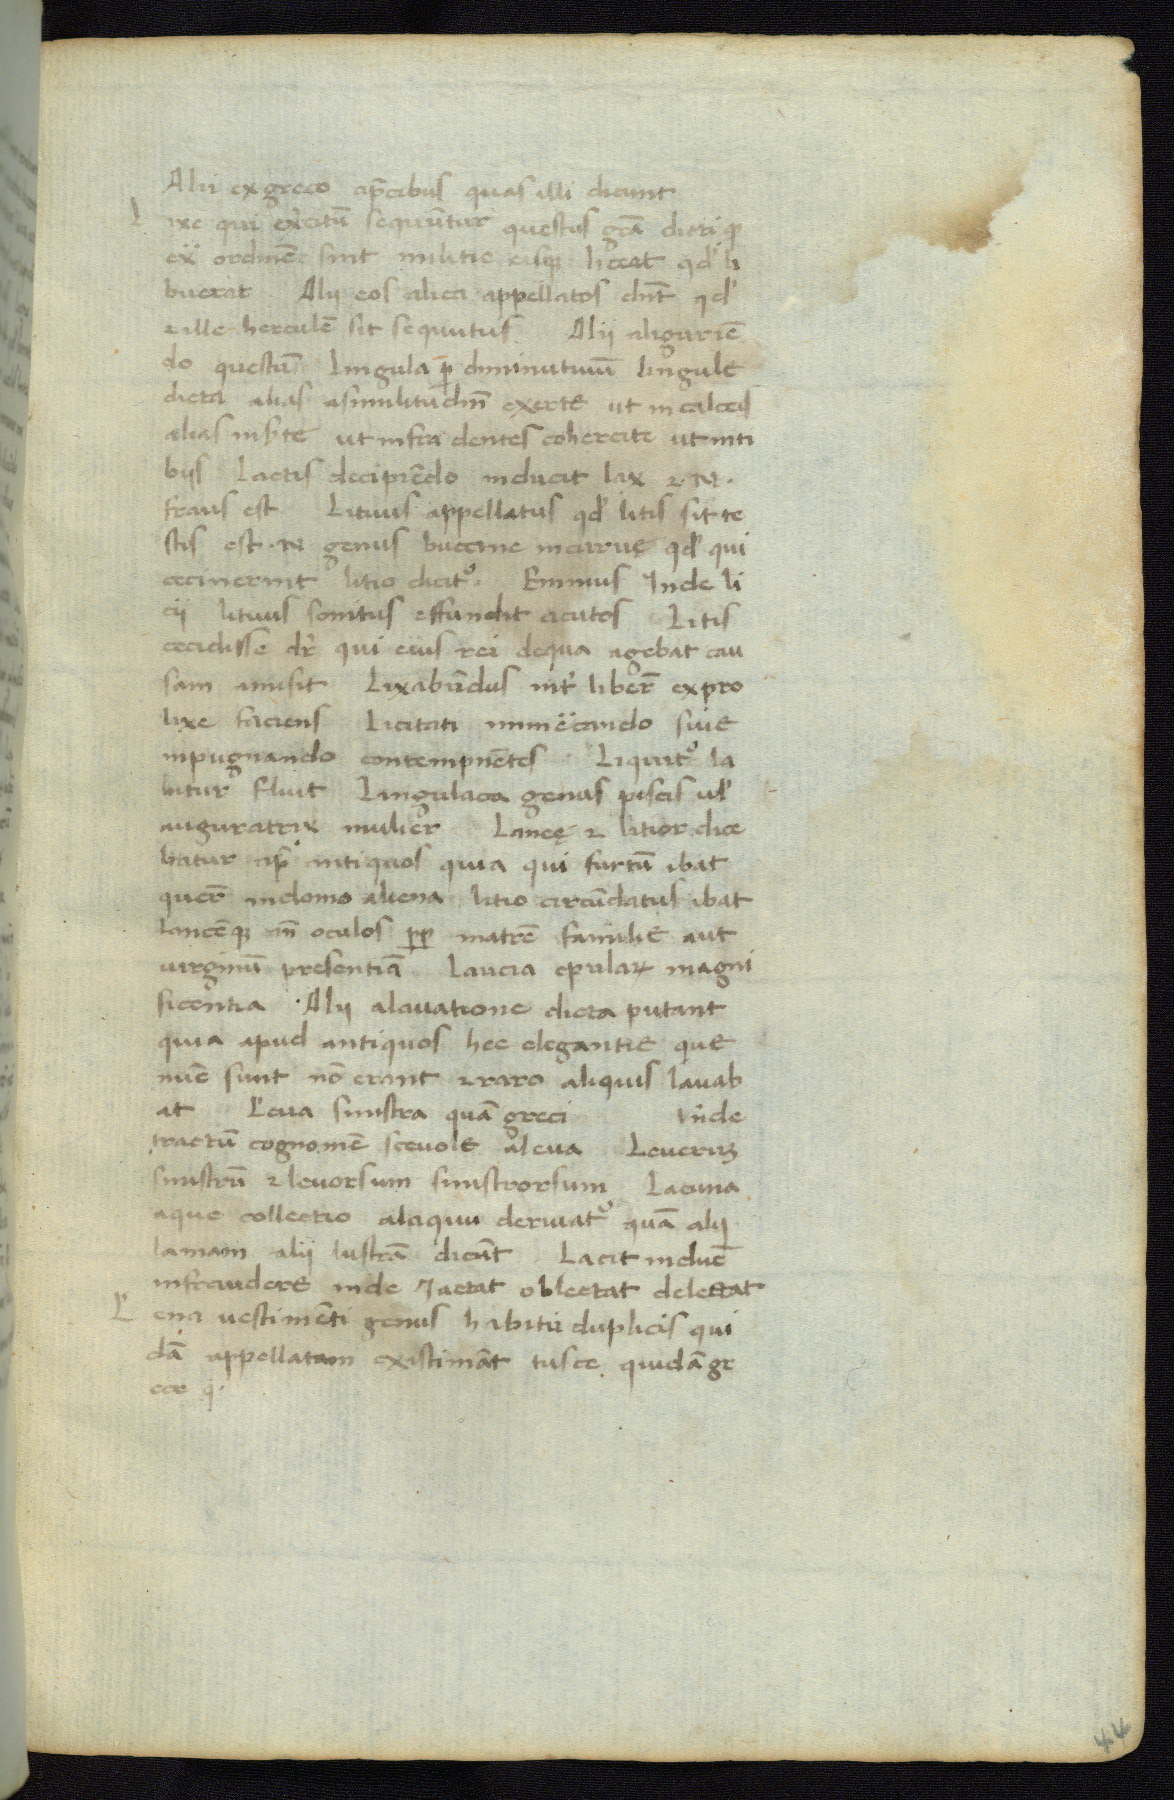 Alii ex greco ap̃cibus quas illi dicunt
L ixe qui exercitũ sequũtur questus gr̃a dicti q̃
ex̃ ordinẽ sint militie eisq; liceat qd̃ li
buerat Alij eos alica appellatos dn̄t qd̃
⁊ ille herculẽ sit sequutus Alij aligurie᷒
do questũ Lingula p̱ diminutiuũ lingule
dicta alias asimilitudin̄ exerte ut in calceis
alias insr̃te ut infra dentes cohercite ut in ti
bijs Lactis decipiẽdo inducit lax ⁊.N.
fraus est Lituus appellatus qd̃ litis sit te
stis est.N genus buccine incurue qd̃ qui
cecinerint litio dicit᷒. Ennius Inde li
cij lituus sonitus effundit acutos Litis
cecidisse dr̃ qui eius rei dequa agebat cau
sam amisit Lixabũdus int̃ liber̃ ex pro
lixe faciens Licitati nimẽcando siue
inpugnando contempnẽtes Liquit᷒ la
bitur fluit Lingulaca genus piscis ul̃
auguratrix mulier Lancę ⁊ litior dice
batur ap̃ antiquos quia qui furtũ ibat
quer̃ indomo aliena litio circũdatus ibat
lancẽq; an̄ oculos p̱p̱ matrẽ familie aut
uirginũ presentiã Laucia epulaꝝ magni
ficentia Alij alauatione dicta putant
quia apud antiquos hec elegantie que
nũc sunt nõ erant ⁊ raro aliquis lauab
at Leua sinistra quã greci unde
tractũ cognomẽ sceuole aleua Leuerũ
sinistrũ ⁊ leuorsum sinistrorsum Lacuna
aque collectio alaquu deriuat᷒ quã alij
lamam alij lustrã dicũt Lacit inducẽ
infraudere inde Jactat oblectat delectat
L ena uestimẽti genus habitũ duplicis qui
dã appellatam existimãt tusce quidã gr
ece q̃.
44